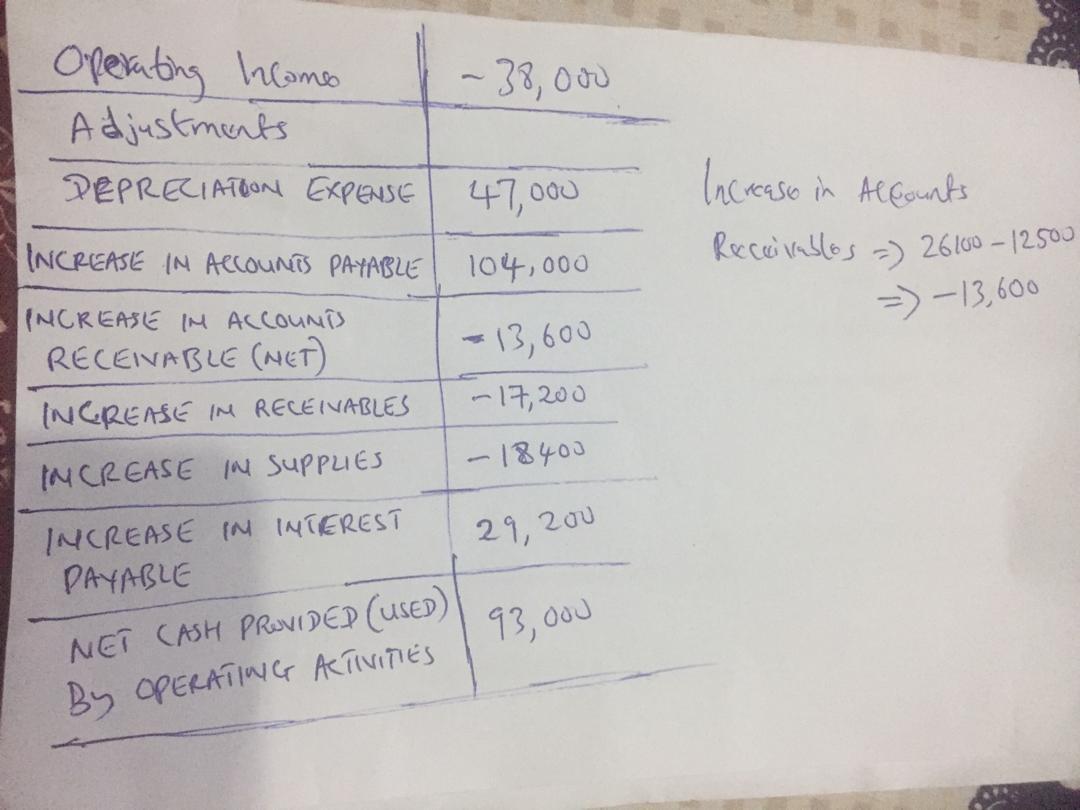 Operating Income - 38,000
Adjustments
DEPRECIATION EXPENSE 47,000
INCREASE IN ACCOUNTS PAYABLE 104,000
INCREASE IN ACCOUNTS
RECEIVABLE (NET) - 13,600
INCREASE IN RECEIVABLES - 17,200
INCREASE IN SUPPLIES - 18400
INCREASE IN INTEREST
PAYABLE 29,200
NET CASH PROVIDED (USED)
By OPERATING ACTIVITIES 93,000
Increase in Accounts
Receivables => 26100 - 12500
=> - 13,600